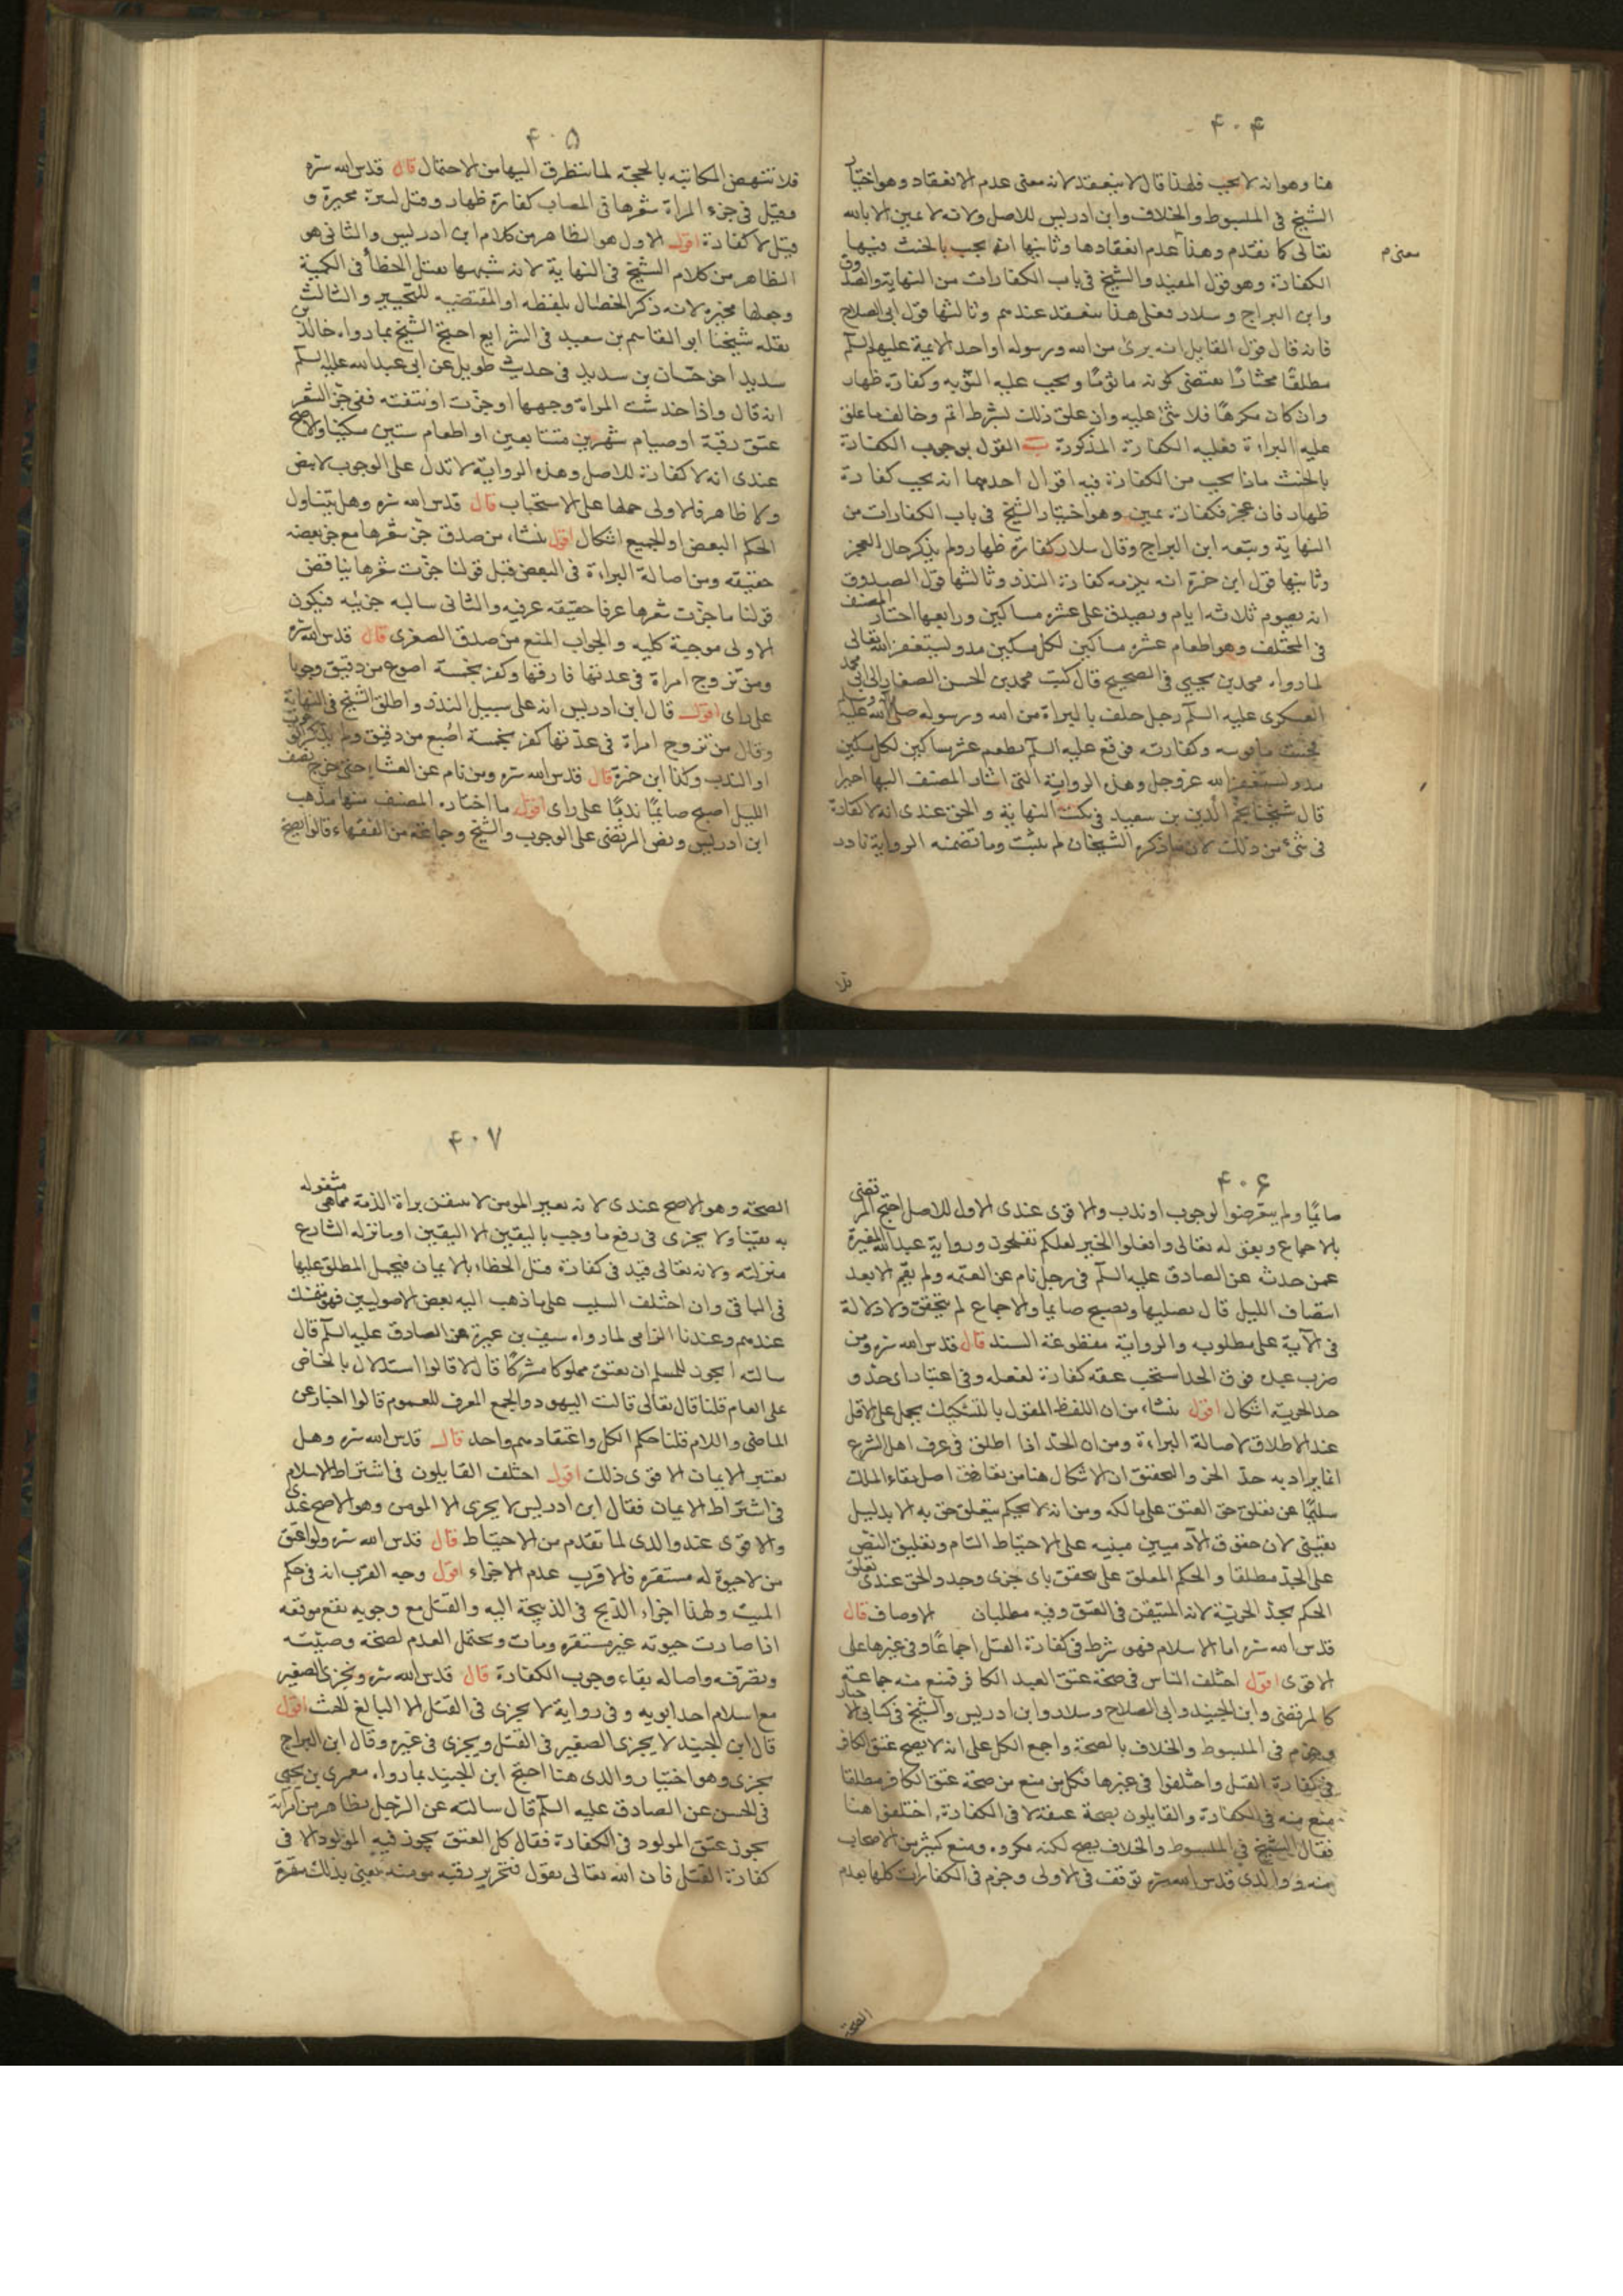 ۴۰۴
هنا وهو انه لا يجب فلهذا قال لا ينعقد لانه معنى عدم الانعقاد وهو اختيار
الشيخ فى المبسوط والخلاف وابن ادريس للاصل ولانه لا يمين الا بالله
تعالى كما تقدم وهذا عدم انعقادها وثانيها انه يجب بالحنث فيها
معنى م
الكفارة وهو قول المفيد والشيخ فى باب الكفارات من النهاية والصدوق
وابن البراج وسلار فعلى هذا ينعقد عندهم وثالثها قول ابى الصلاح
فانه قال قول القايل انه برئ من الله ورسوله او احد الائمة عليهم السلم
مطلقا مختارًا يقتضى كونه ماثومًا ويجب عليه التوبه وكفارة ظهار
وان كان مكرهًا فلا شئ عليه وان علق ذلك بشرط اثم وخالف ما علق
عليه البراءة فعليه الكفارة المذكورة ب القول بوجوب الكفارة
بالحنث ماذا يجب من الكفارة فيه اقوال احدها انه يجب كفارة
ظهار فان عجز فكفارة يمين وهو اختيار الشيخ فى باب الكفارات من
النهاية وتبعه ابن البراج وقال سلار كفارة ظهار ولم يذكر حال العجز
وثانيها قول ابن حمزة انه يلزمه كفارة النذر وثالثها قول الصدوق
انه يصوم ثلاثه ايام ويصدق على عشره مساكين ورابعها اختار المصنف
فى المختلف وهو اطعام عشره مساكين لكل مسكين مد ويستغفر الله تعالى
لما رواه محمد بن يحيى فى الصحيح قال كتب محمد بن الحسن الصفار الى ابى محمد
العسكرى عليه السلم رجل حلف بالبراءة من الله ورسوله صلى الله عليه وآله وسلم
فحنث ما توبته وكفارته فوقع عليه السلم يطعم عشر مساكين لكل مسكين
مد ويستغفر الله عز وجل وهذه الرواية التى اشار المصنف اليها اخيرا
قال شيخنا نجم الدين بن سعيد فى نكت النهاية والحق عندى انه لا كفارة
فى شئ من ذلك لان ما ذكره الشيخان لم يثبت وما تضمنه الرواية نادر
فلا
۴۰۵
فلا تنهض المكاتبه بالحجة لما يتطرق اليها من الاحتمال قال قدس الله سره
وقيل فى جزء المراة شعرها فى المصاب كفارة ظهار وقيل كبيرة مخيرة و
قيل لا كفارة اقول الاول هو الظاهر من كلام ابن ادريس والثانى هو
الظاهر من كلام الشيخ فى النهاية لانه شبهها بقتل الخطأ فى الكمية
وجعلها مخيره لانه ذكر الخصال بلفظه او المقتضيه للتخيير والثالث
نقله شيخنا ابو القاسم بن سعيد فى الشرايع احتج الشيخ بما رواه خالد بن
سديد اخى حنان بن سديد فى حديث طويل عن ابى عبد الله عليه السلم
انه قال واذا خدشت المراة وجهها او جزت او نتفته ففى جز الشعر
عتق رقبة او صيام شهرين متتابعين او اطعام ستين مسكينا والاصح
عندى انه لا كفارة للاصل وهذه الرواية لا تدل على الوجوب لا بنص
ولا ظاهر فالاولى حملها على الاستحباب قال قدس الله سره وهل يتناول
الحكم البعض او الجميع اشكال اقول ينشاء من صدق جز شعرها مع جز بعضه
حقيقه ومن اصالة البراءة فى البعض قيل قولنا جزت شعرها يناقض
قولنا ما جزت شعرها عرفا حقيقه عرفيه والثانى سالبه جزئيه فيكون
الاولى موجبة كليه والجواب المنع من صدق الصغرى قال قدس الله سره
ومن تزوج امراة فى عدتها فارقها وكفر بخمسة اصوع من دقيق وجوبا
على راى اقول قال ابن ادريس انه على سبيل الندب واطلق الشيخ فى النهاية
وقال من تزوج امراة فى عدتها كفر بخمسة اصبع من دقيق ولم يذكر الوجوب
او الندب وكذا ابن حمزة قال قدس الله سره ومن نام عن العشاء حتى خرج نصف
الليل اصبح صايمًا ندبًا على راى اقول ما اختاره المصنف منها مذهب
ابن ادريس ونص المرتضى على الوجوب والشيخ وجماعة من الفقهاء قالوا يصبح
۴۰۶
صايمًا ولم يتعرضوا لوجوب او ندب والاقوى عندى الاول للاصل احتج المرتضى
بالاجماع وبقوله تعالى وافعلوا الخير لعلكم تفلحون ورواية عبد الله المغيرة
عمن حدثه عن الصادق عليه السلم فى رجل نام عن العتمه ولم يقم الا بعد
انتصاف الليل قال يصليها ويصبح صايما والاجماع لم يتحقق ولا دلالة
فى الآية على مطلوبه والرواية مقطوعة السند قال قدس الله سره ومن
ضرب عبده فوق الحد استحب عتقه كفارة لفعله وفى اعتبار اى حد و
حد الحرية اشكال اقول ينشاء من ان اللفظ المقول بالتشكيك يحمل على الاقل
عند الاطلاق لاصالة البراءة ومن ان الحد اذا اطلق فى عرف اهل الشرع
انما يراد به حد الحر والتحقيق ان الاشكال هنا من تعارض اصل بقاء الملك
سليمًا عن تعلق حق العتق على مالكه ومن انه لا يحكم بتعلق حق به الا بدليل
يقينى لان حقوق الآدميين مبنيه على الاحتياط التام وتعليق النص
على الحد مطلقا والحكم المعلق على يتحقق باى جزى وجد والحق عندى تعلق
الحكم بحد الحرية لانه المتيقن فى العتق وفيه مطلبان الاوصاف قال
قدس الله سره اما الاسلام فهو شرط فى كفارة القتل اجماعًا وفى غيرها على
الاقوى اقول اختلف الناس فى صحة عتق العبد الكافر فمنع منه جماعة
كالمرتضى وابن الجنيد وابى الصلاح وسلار وابن ادريس والشيخ فى كتابى الاخبار
وجزم فى المبسوط والخلاف بالصحة واجمع الكل على انه لا يصح عتق الكافر
فى كفارة القتل واختلفوا فى غيرها فكل من منع من صحة عتق الكافر مطلقا
منع منه فى الكفارة والقايلون بصحة عتقه لا فى الكفارة اختلفوا هنا
فقال الشيخ فى المبسوط والخلاف يصح لكنه مكروه ومنع كثير من الاصحاب
منه ووالدى قدس الله سره توقف فى الاولى وجزم فى الكفارات كلها بعدم
الصحة
۴۰۷
الصحة وهو الاصح عندى لانه بغير المومن لا يتيقن براة الذمة مما هى مشغوله
به يقينا ولا يجزى فى رفع ما وجب باليقين الا اليقين او ما نزله الشارع
منزلته ولانه تعالى قيد فى كفارة قتل الخطاء بالايمان فيحمل المطلق عليها
فى الباقى وان اختلف السبب على ما ذهب اليه بعض الاصوليين فهو
عندهم وعندنا الزامى لما رواه سيف بن عميرة عن الصادق عليه السلم قال
سالته ايجوز للمسلم ان يعتق مملوكا مشركًا قال لا قالوا استدلال بالخاص
على العام قلنا قال تعالى قالت اليهود والجمع المعرف للعموم قالوا اخبار عن
الماضى واللام قلنا حكم الكل واعتقادهم واحد قال قدس الله سره وهل
يعتبر الايمان الاقوى ذلك اقول اختلف القايلون فى اشتراط الاسلام
فى اشتراط الايمان فقال ابن ادريس لا يجزى الا المومن وهو الاصح عندى
والاقوى عند والدى لما تقدم من الاحتياط قال قدس الله سره ولو اعتق
من لا حيوة له مستقره فالاقرب عدم الاجزاء اقول وجه القرب انه فى حكم
الميت ولهذا اجزاء الذبح فى الذبيحة اليه والقتل مع وجوبه يقع موقعه
اذا صارت حيوته غير مستقره ومات ويحتمل العدم لصحة وصيته
وتصرفه واصاله بقاء وجوب الكفارة قال قدس الله سره ويجزى الصغير
مع اسلام احد ابويه وفى رواية لا يجزى فى القتل الا البالغ الحنث اقول
قال ابن الجنيد لا يجزى الصغير فى القتل ويجزى فى غيره وقال ابن البراج
يجزى وهو اختيار والدى هنا احتج ابن الجنيد بما رواه معمر بن يحيى
فى الحسن عن الصادق عليه السلم قال سالته عن الرجل يظاهر من امراته
يجوز عتق المولود فى الكفارة فقال كل العتق يجوز فيه المولود الا فى
كفارة القتل فان الله تعالى يقول فتحرير رقبه مومنه يعنى بذلك مقرة